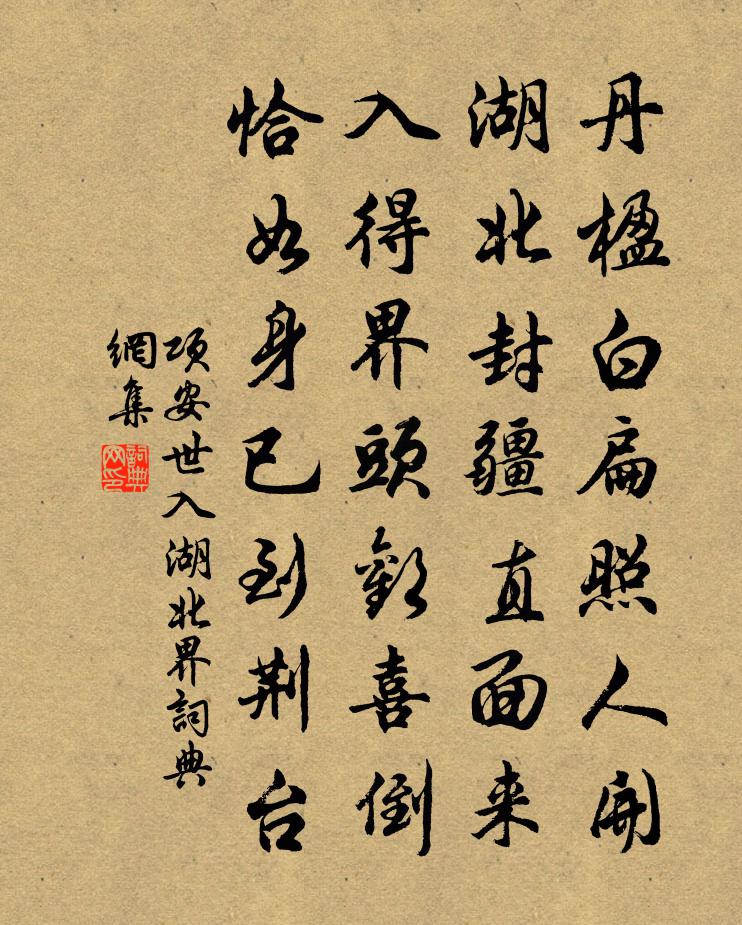 丹楹白扁照人開
湖北封疆直面来
入得界頭歡喜倒
恰如身已到荆台
項安世入湖北界詞典
網集
詞典网印